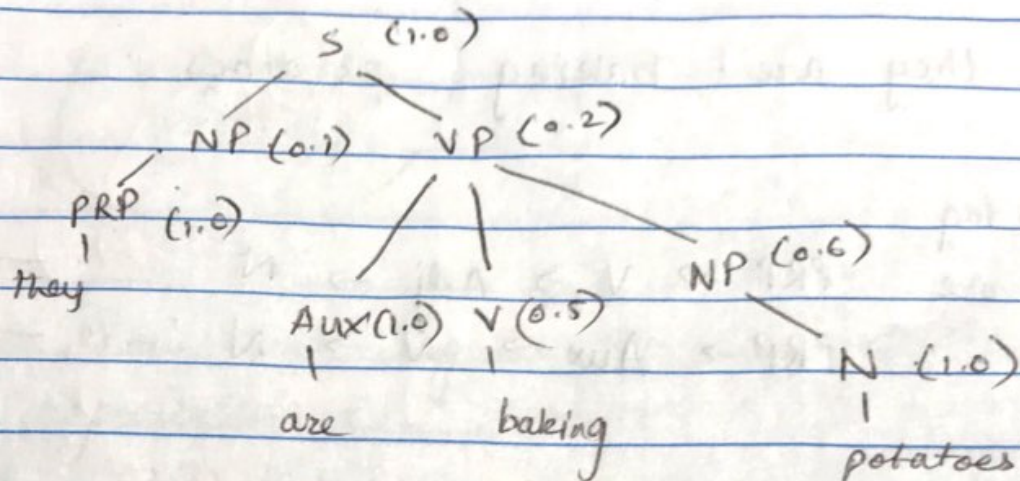 S (1.0)
NP (0.1) VP (0.2)
PRP (1.0)
they
NP (0.6)
Aux (1.0) V (0.5)
N (1.0)
are baking
potatoes